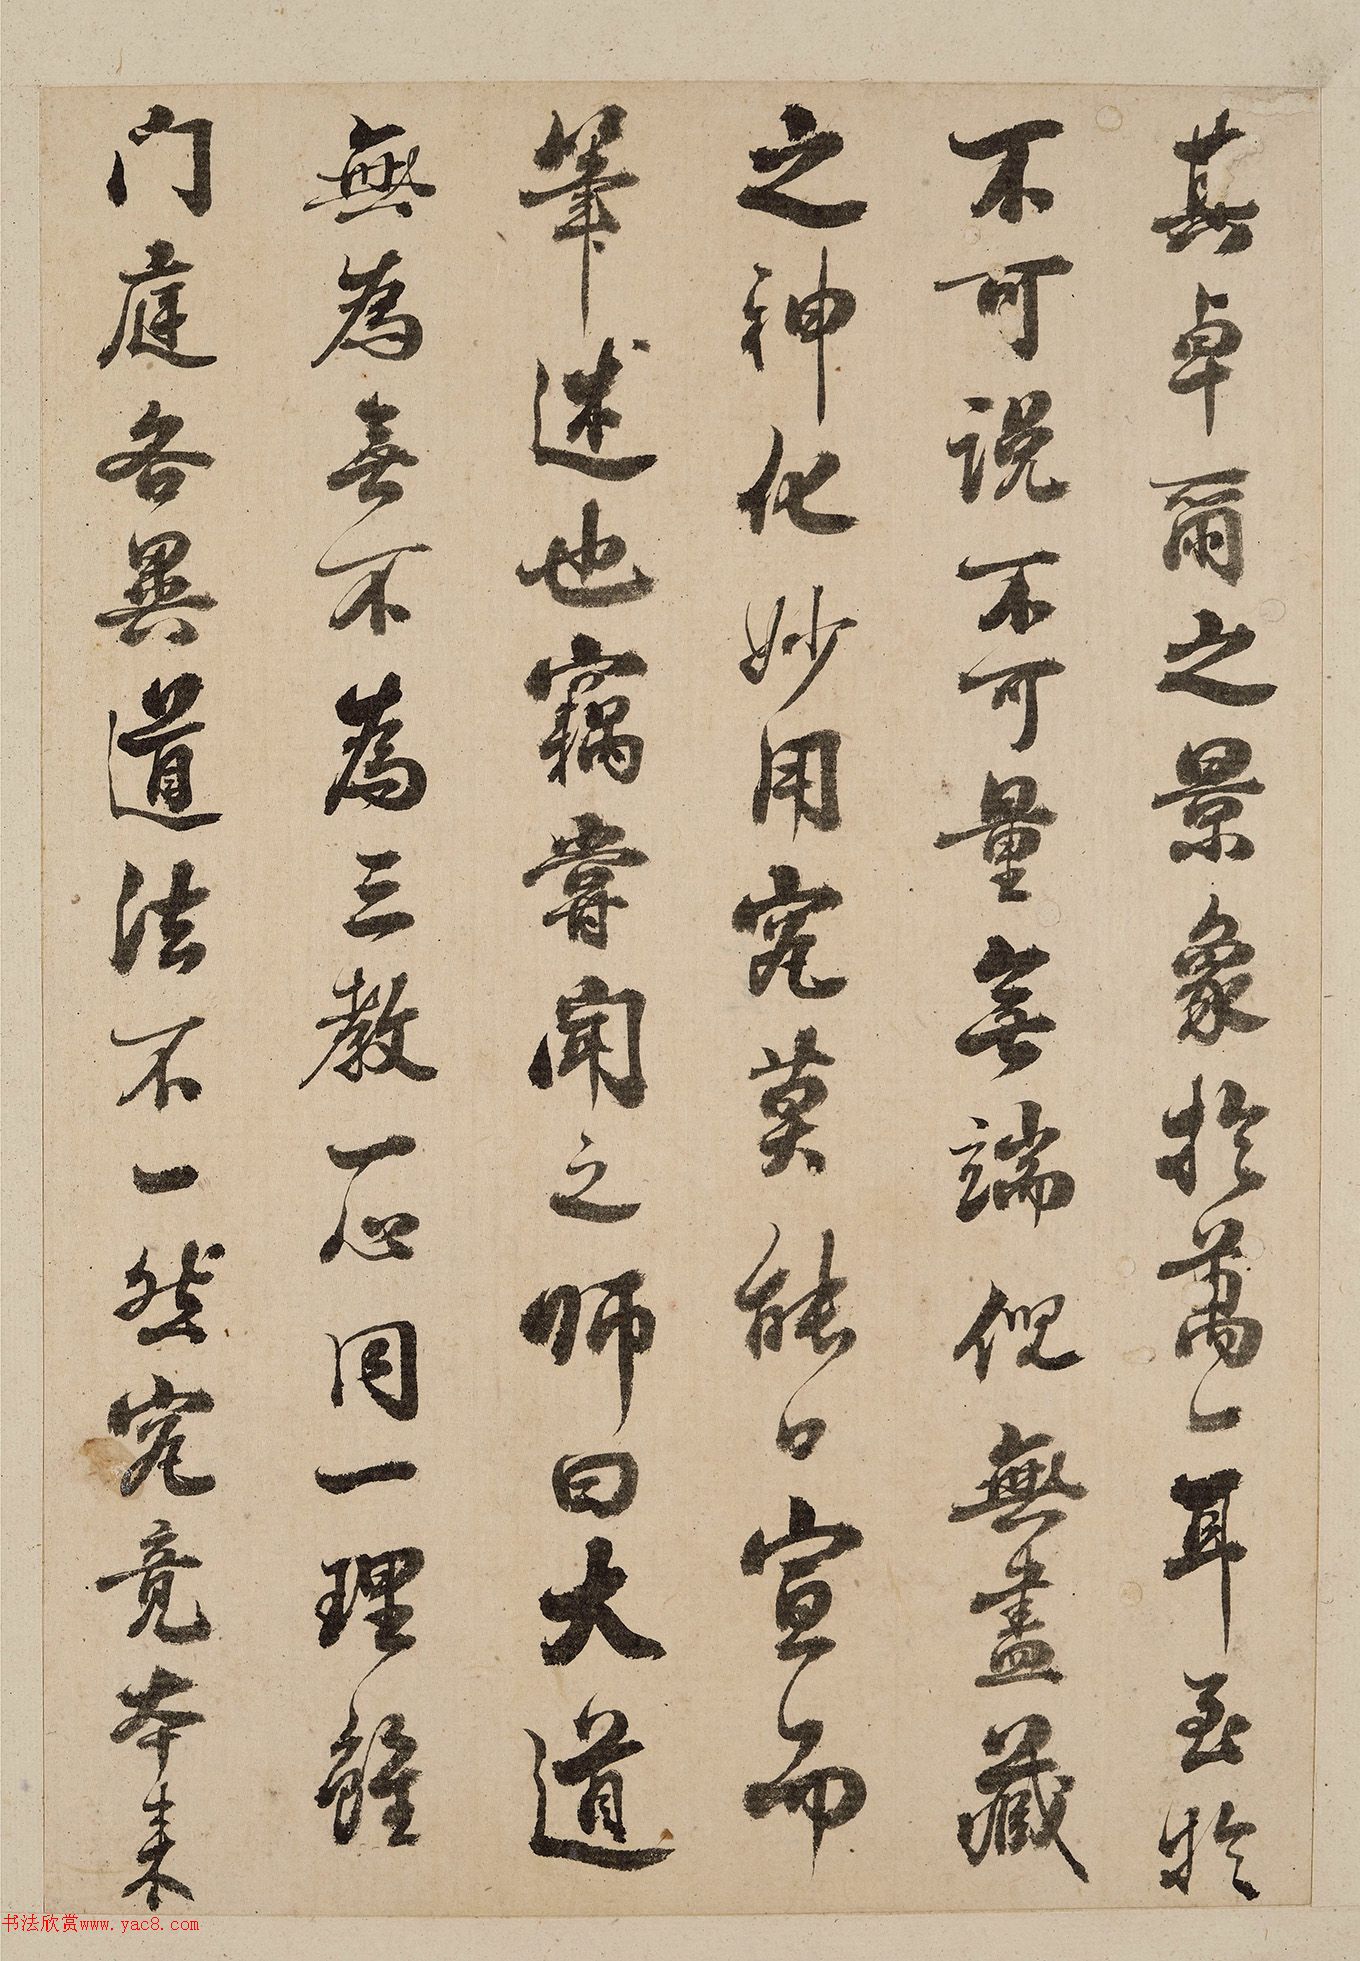 其卓爾之景象於萬一耳至於
不可説不可量無端倪無盡藏
之神化妙用究莫能口宣而
筆述也竊嘗聞之師曰大道
無為無不為三教一心同一理雖
门庭各異道法不一然究竟本来
书法欣赏www.yac8.com